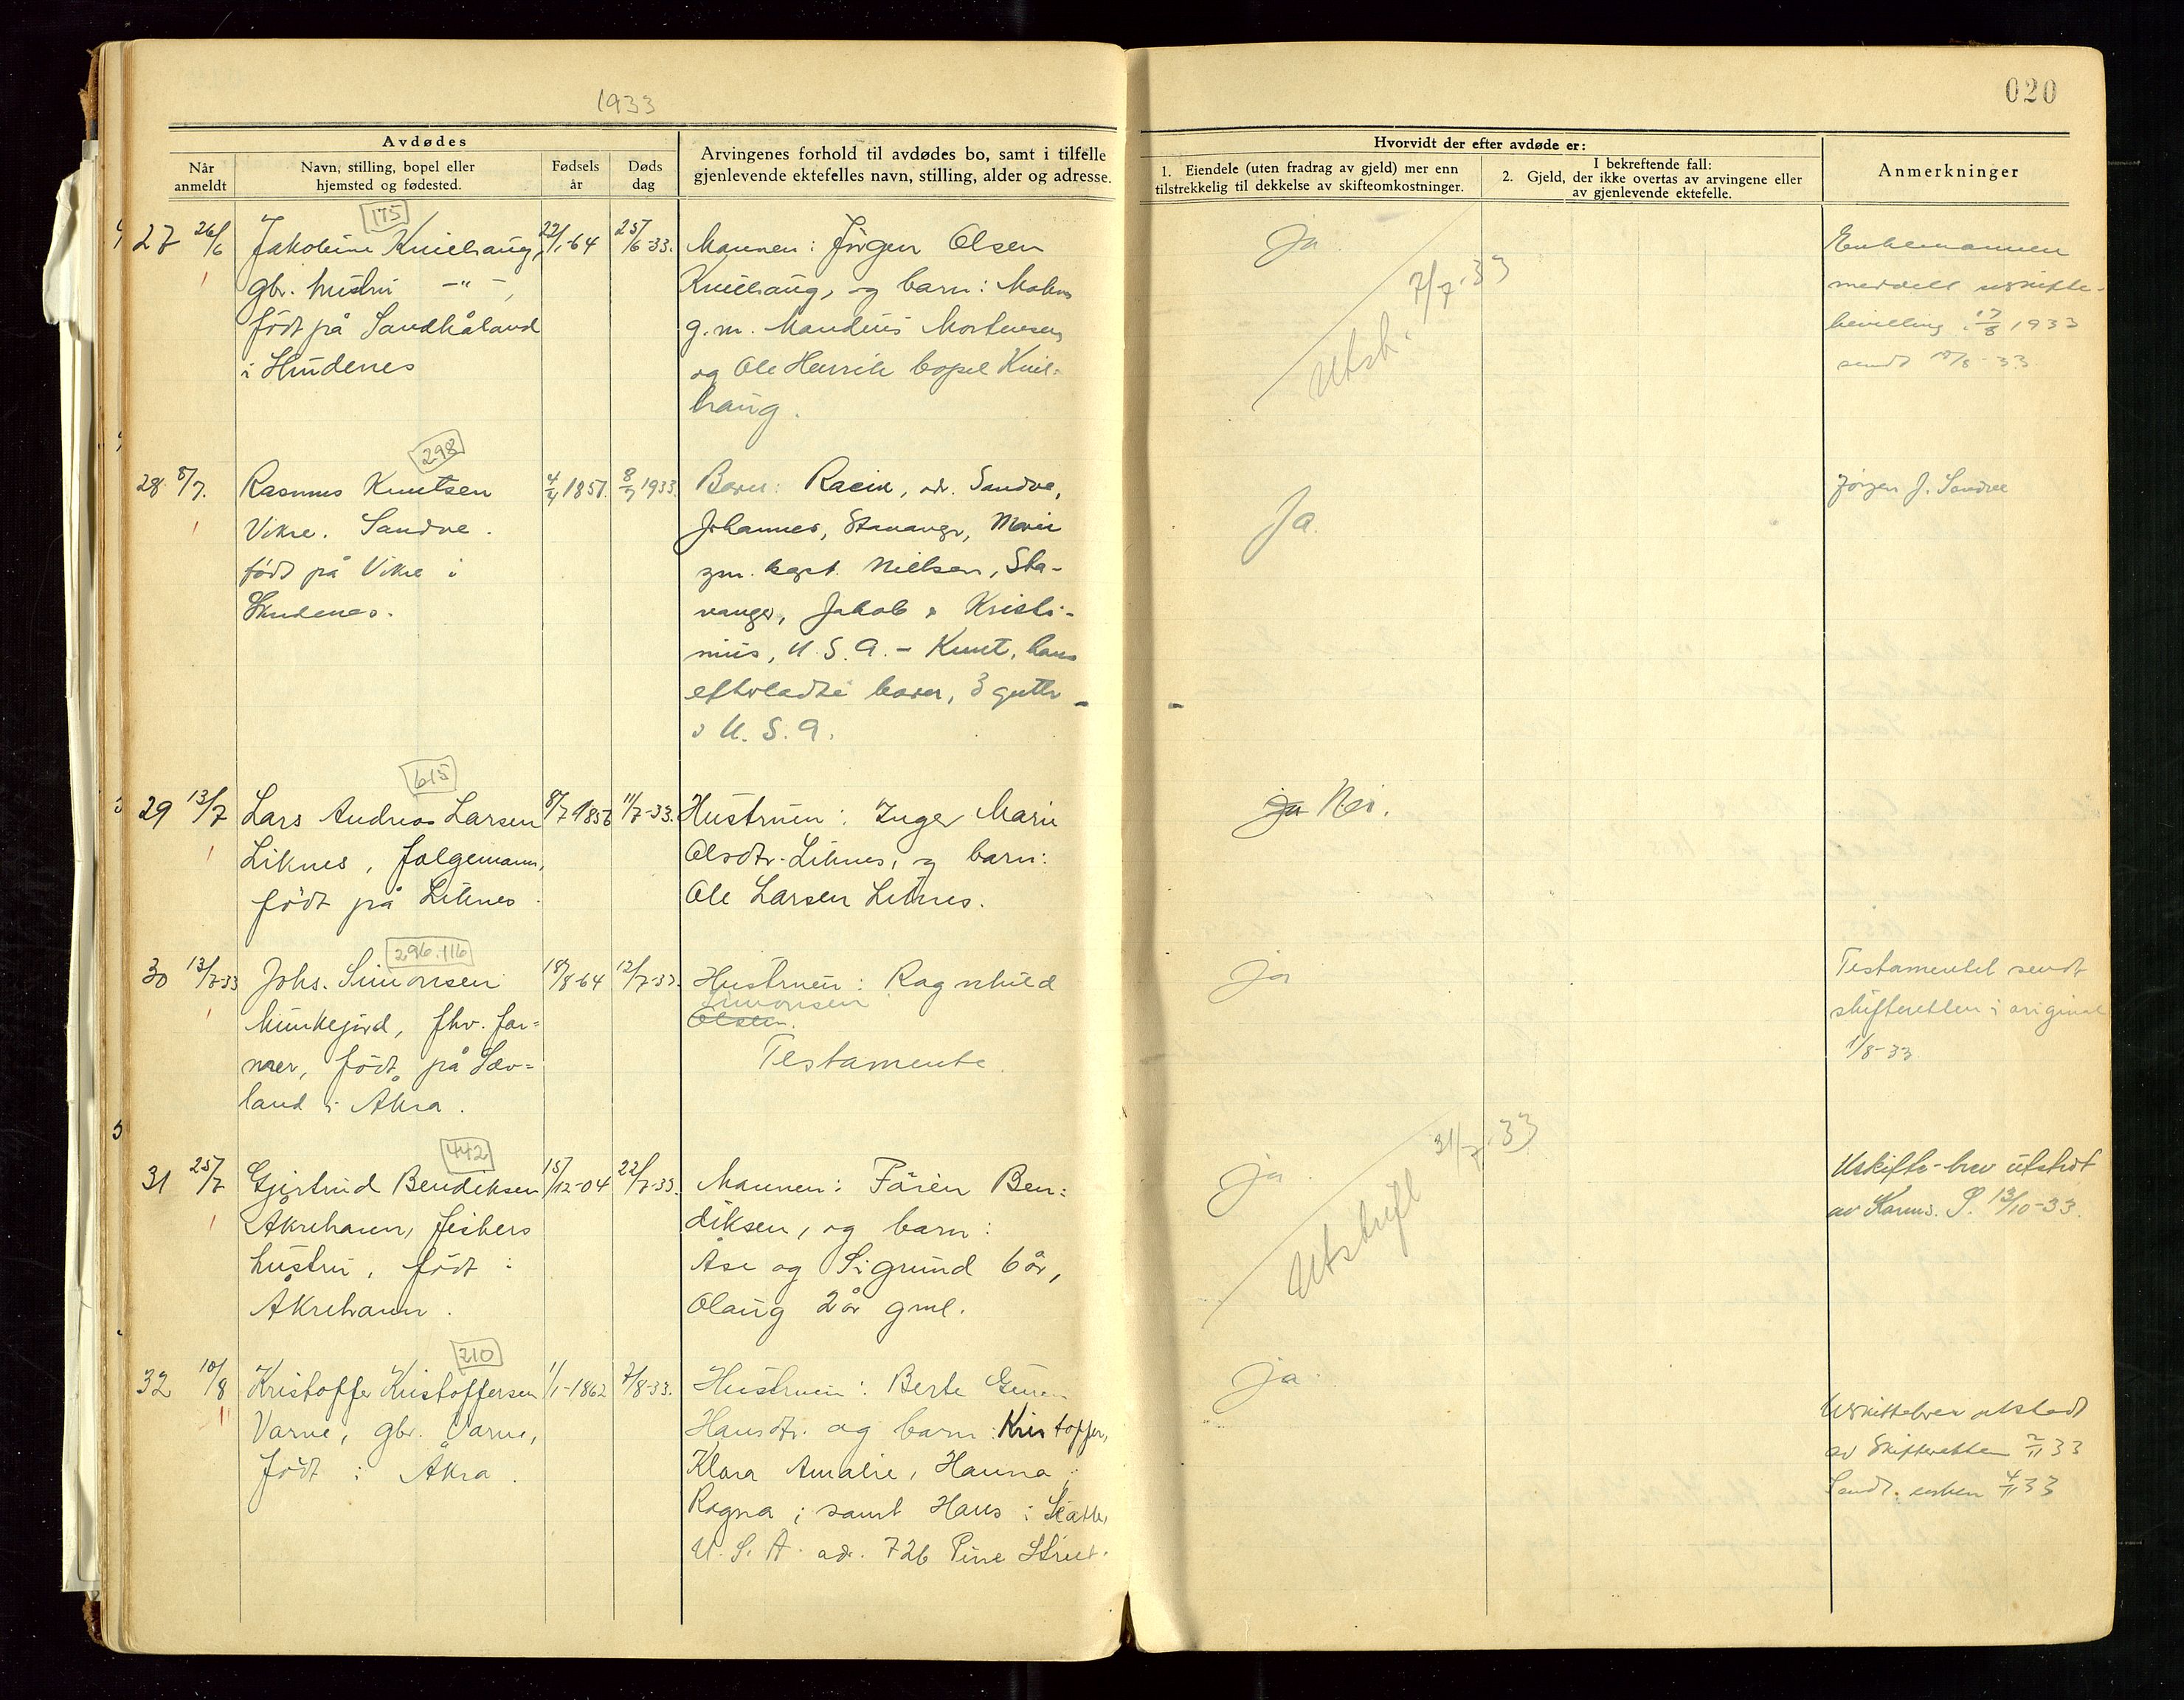 1933
020
Avdødes
Når anmeldt
Navn, stilling, bopel eller hjemsted og fødested.
Fødsels år
Døds dag
Arvingenes forhold til avdødes bo, samt i tilfelle gjenlevende ektefelles navn, stilling, alder og adresse.
Hvorvidt der efter avdøde er:
1. Eiendele (uten fradrag av gjeld) mer enn tilstrekkelig til dekkelse av skifteomkostninger.
I bekreftende fall:
2. Gjeld, der ikke overtas av arvingene eller av gjenlevende ektefelle.
Anmerkninger
175
27 26/6 Jakobine Knielhaug, 22/1-64 25/6-33. Mannen: Jörgen Olsen
gbr. hustru -"-, Knielhaug, og barn:
født på Sandhåland g.m. Mandius Mortensen
i Skudenes og Ole Henrik bopel Kniel-
haug.
ja
Utskr. 7/7-33
Enkemannen
meddelt uskifte-
bevilling 17/8 1933
sendt 18/8-33
298
28 8/7. Rasmus Knutsen 4/4 1857. 8/7 1933. Barn: adr. Sandve,
Vikre. Sandve. Johannes, Stavanger, Marie
født på Vikre i gm. kapt. Nielsen, Sta-
Skudenes. vanger, Jakob & Kristi-
nius, U.S.A. - Knut, hans
efterladte barn, 3 gutter
i U.S.A.
Ja.
Jörgen J. Sandve
615
29 13/7 Lars Andreas Larsen 8/7 1856 11/7-33. Hustruen: Inger Marie
Liknes, folgemann, Olsdtr. Liknes, og barn:
født på Liknes. Ole Larsen Liknes.
ja Nei.
296.116
30 13/7-33 Johs. Simonsen 18/8-64 12/7-33. Hustruen: Ragnhild
Simonsen
Munkejord, fhv. for- Olsen.
mer, født på Sæv- Testamente.
land i Åkra.
ja
Testamentet sendt
skifteretten i original
1/8-33.
442
31 25/7 Gjertrud Bendiksen 15/12-04 22/7-33. Mannen: Fören Ben-
Åkrehavn, fiskers diksen, og barn:
hustru, født i Åse og Sigrund 6 år,
Åkrehavn. Olaug 2 år gml.
ja.
Utskrift 31/7-33
Uskifte-brev utstedt
av Karms. S. 13/10-33.
210
32 10/8 Kristoffer Kristoffersen 1/1-1862 7/8-33. Hustruen: Berte
Varne, gbr. Varne, Hansdtr. og barn: Kristoffer,
født i Åkra. Klara Amalie, Hanna,
Ragna; samt Hans i Seattle,
U.S.A. adr. 726 Pine Street.
ja.
Uskiftebrev utstedt
av Skifteretten 2/11 33
Sendt enken 4/11 33